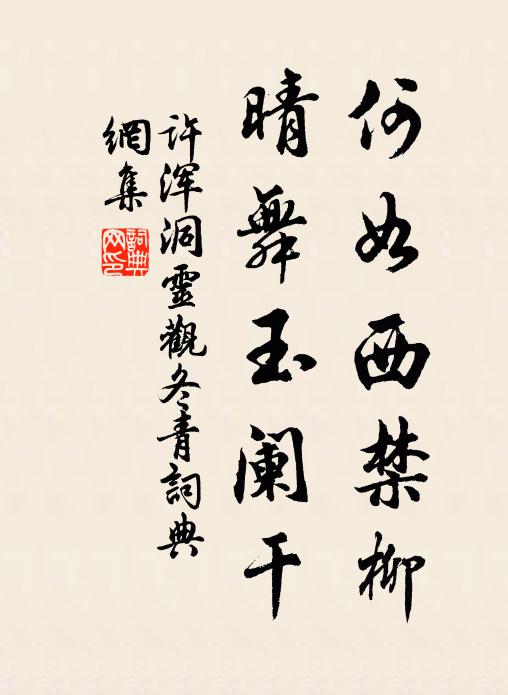 何如西禁柳
晴舞玉阑干
许浑洞靈觀冬青詞典
網集
詞典網印